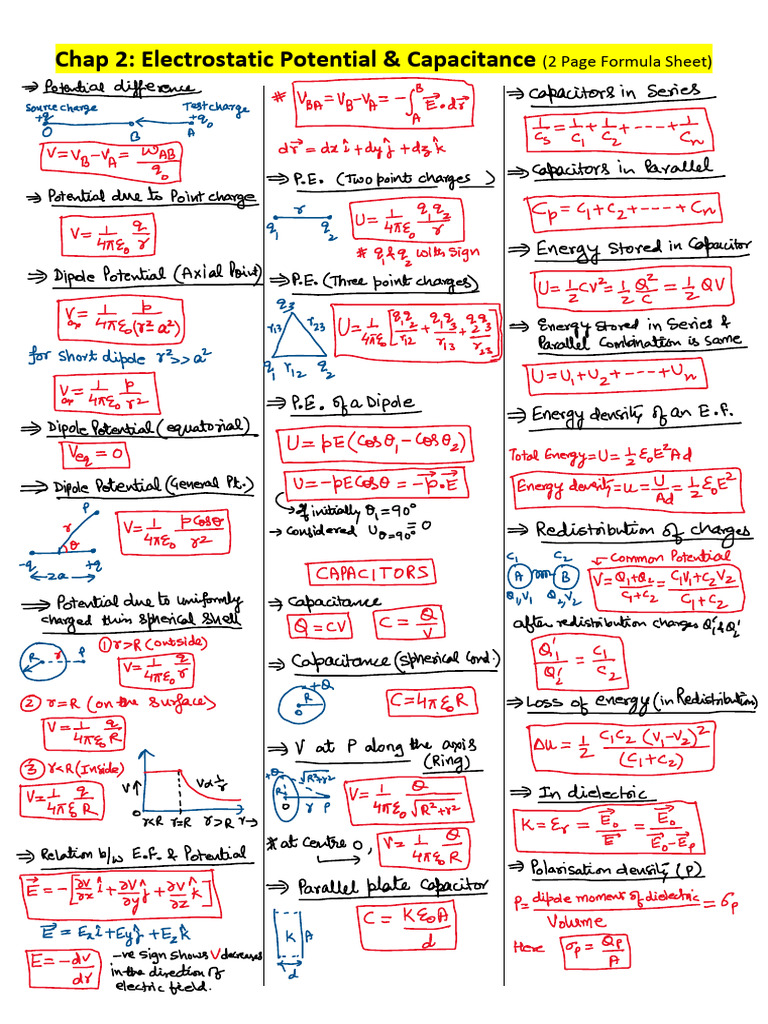 Chap 2: Electrostatic Potential & Capacitance (2 Page Formula Sheet)
⇒ Potential difference
Source charge Test charge
+q +q₀
O B A
V = V_B - V_A = W_AB / q₀
⇒ Potential due to Point charge
V = 1/4πε₀ q/r
⇒ Dipole Potential (Axial Point)
V_ax = 1/4πε₀ p/(r² a²)
for short dipole r² >> a²
V_ax = 1/4πε₀ p/r²
⇒ Dipole Potential (equatorial)
V_eq = 0
⇒ Dipole Potential (General Pt.)
P
r
θ
-q +q
←2a→
V = 1/4πε₀ pcosθ/r²
⇒ Potential due to uniformly
charged thin spherical shell
① r>R (outside)
R r P
V = 1/4πε₀ q/r
② r=R (on the surface)
V = 1/4πε₀ q/R
③ r<R (Inside)
V = 1/4πε₀ q/R
V↑
V∝1/r
O r<R r=R r>R r→
⇒ Relation b/w E.F. & Potential
E⃗ = -[∂V/∂x î + ∂V/∂y ĵ + ∂V/∂z k̂]
E⃗ = Exî + Eyĵ + Ezk̂
E = -dv/dr
-ve sign shows V decreases
in the direction of
electric field.
# V_BA = V_B - V_A = -∫_A^B E⃗.dr⃗
dr⃗ = dx î + dy ĵ + dz k̂
⇒ P.E. (Two point charges)
r
q₁ q₂
U = 1/4πε₀ q₁q₂/r
# q₁ & q₂ with sign
⇒ P.E. (Three point charges)
q₃
r₁₃ r₂₃
q₁ r₁₂ q₂
U = 1/4πε₀ [q₁q₂/r₁₂ + q₁q₃/r₁₃ + q₂q₃/r₂₃]
⇒ P.E. of a Dipole
U = pE(Cosθ₁ - Cosθ₂)
U = -pECosθ = -p⃗.E⃗
→ If initially θ₁ = 90°
→ Considered U_θ=90° = 0
CAPACITORS
⇒ Capacitance
Q = CV C = Q/V
⇒ Capacitance (Spherical Cond.)
+Q
R
O
C = 4πε₀R
⇒ V at P along the axis
(Ring)
+Q √R²+r²
R
O r P
V = 1/4πε₀ Q/√R²+r²
* at centre O, V = 1/4πε₀ Q/R
⇒ Parallel plate capacitor
K A
d
C = Kε₀A/d
⇒ Capacitors in Series
1/Cs = 1/C₁ + 1/C₂ + ---- + 1/Cn
⇒ Capacitors in Parallel
Cp = C₁ + C₂ + ---- + Cn
⇒ Energy Stored in Capacitor
U = 1/2 CV² = 1/2 Q²/C = 1/2 QV
⇒ Energy Stored in Series &
Parallel Combination is same
U = U₁ + U₂ + ---- + Un
⇒ Energy density of an E.F.
Total Energy = U = 1/2 ε₀E²Ad
Energy density = u = U/Ad = 1/2 ε₀E²
⇒ Redistribution of charges
C₁ C₂
A B
Q₁,V₁ Q₂,V₂
← Common Potential
V = Q₁+Q₂/C₁+C₂ = C₁V₁+C₂V₂/C₁+C₂
after redistribution charges Q₁' & Q₂'
Q₁'/Q₂' = C₁/C₂
⇒ Loss of energy (in Redistribution)
Δu = 1/2 C₁C₂(V₁-V₂)²/(C₁+C₂)
⇒ In dielectric
K = εr = E₀⃗/E⃗ = E₀⃗/E₀⃗-Ep⃗
⇒ Polarisation density (P)
P = dipole moment of dielectric/Volume = σp
Here σp = Qp/A